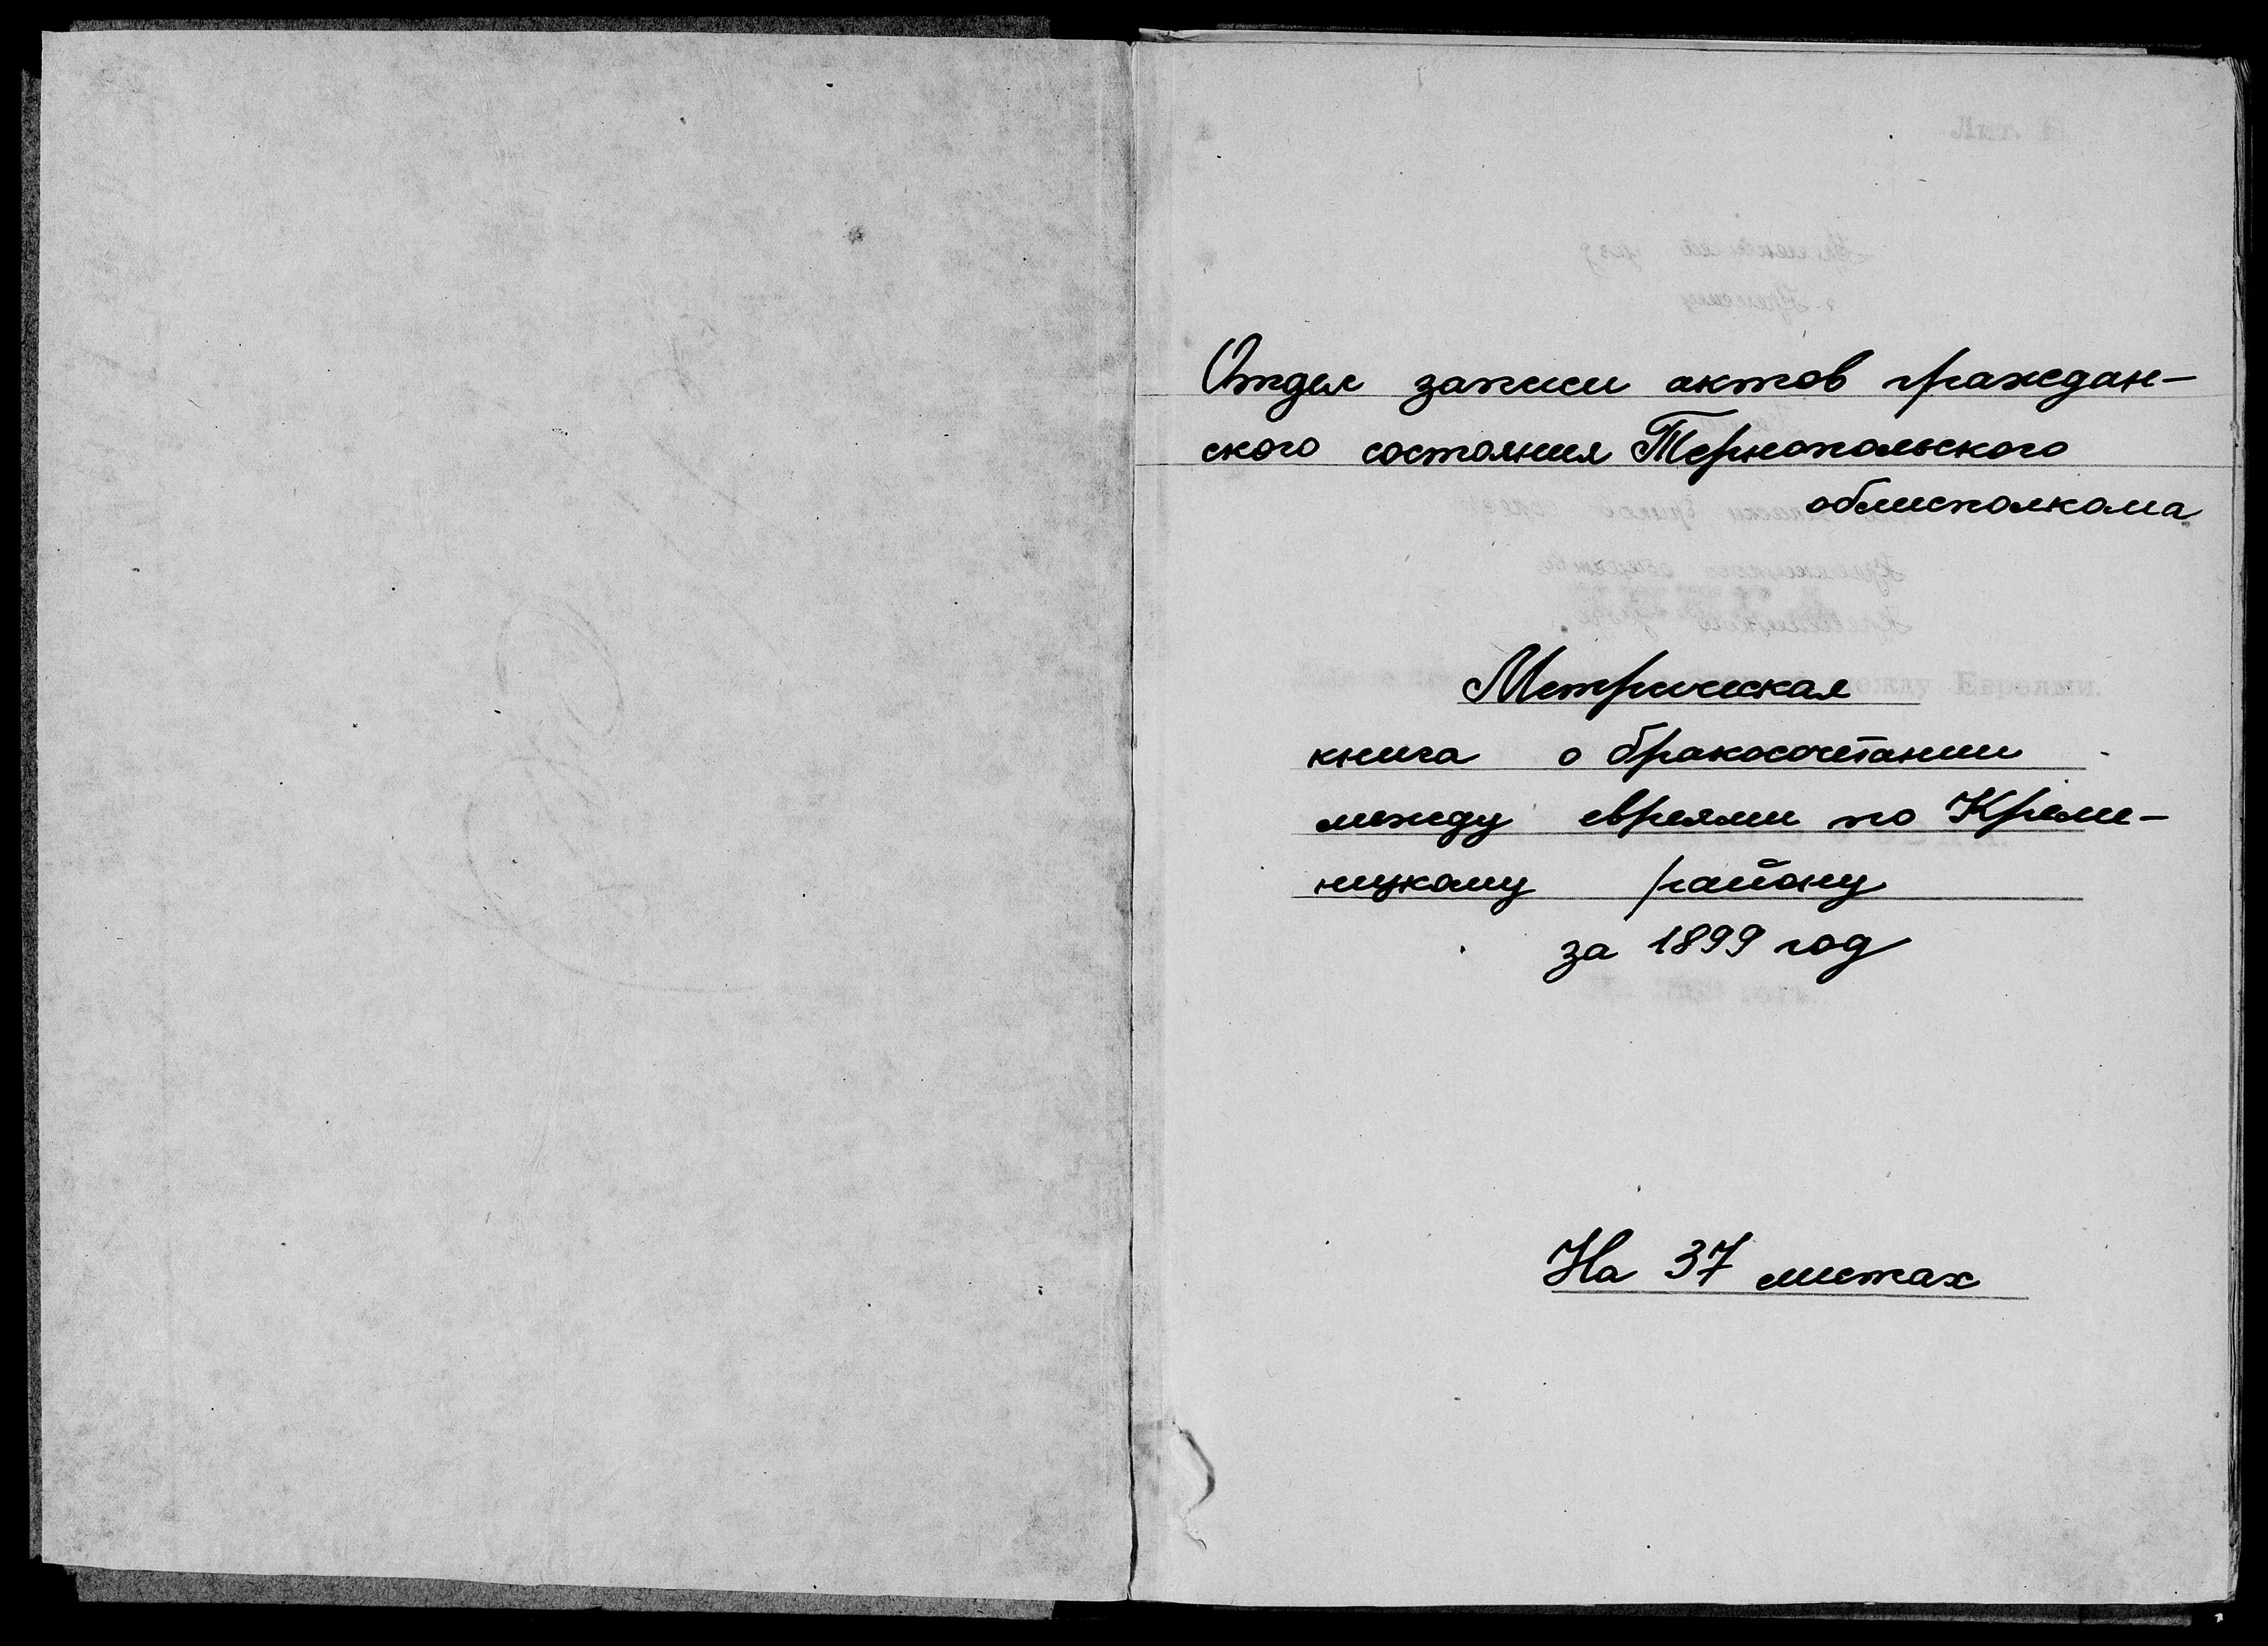 Отдел записи актов граждан-
ского состояния Тернопольского
облисполкома
Метрическая
книга о бракосочетании
между евреями по Креме-
ницкому району
за 1899 год
На 37 листах